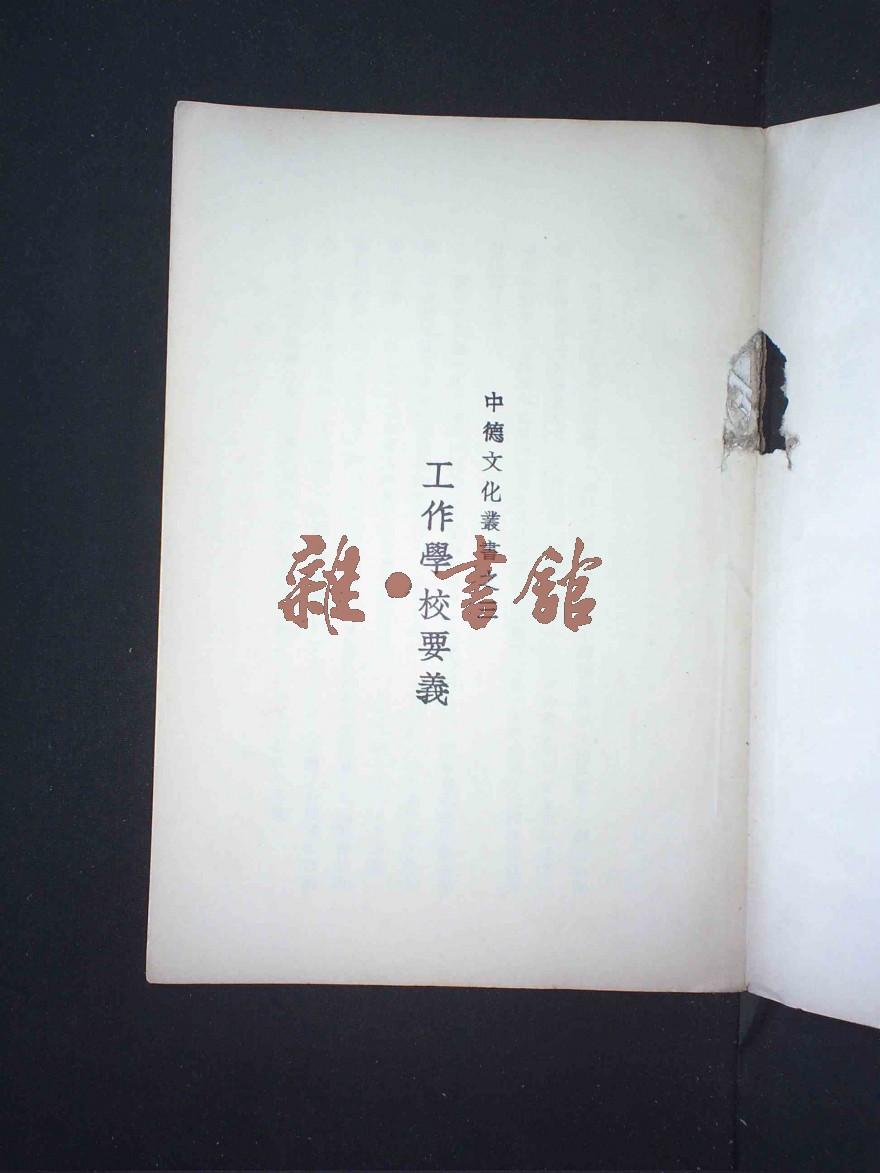 中德文化叢書之三
工作學校要義
雜·書館